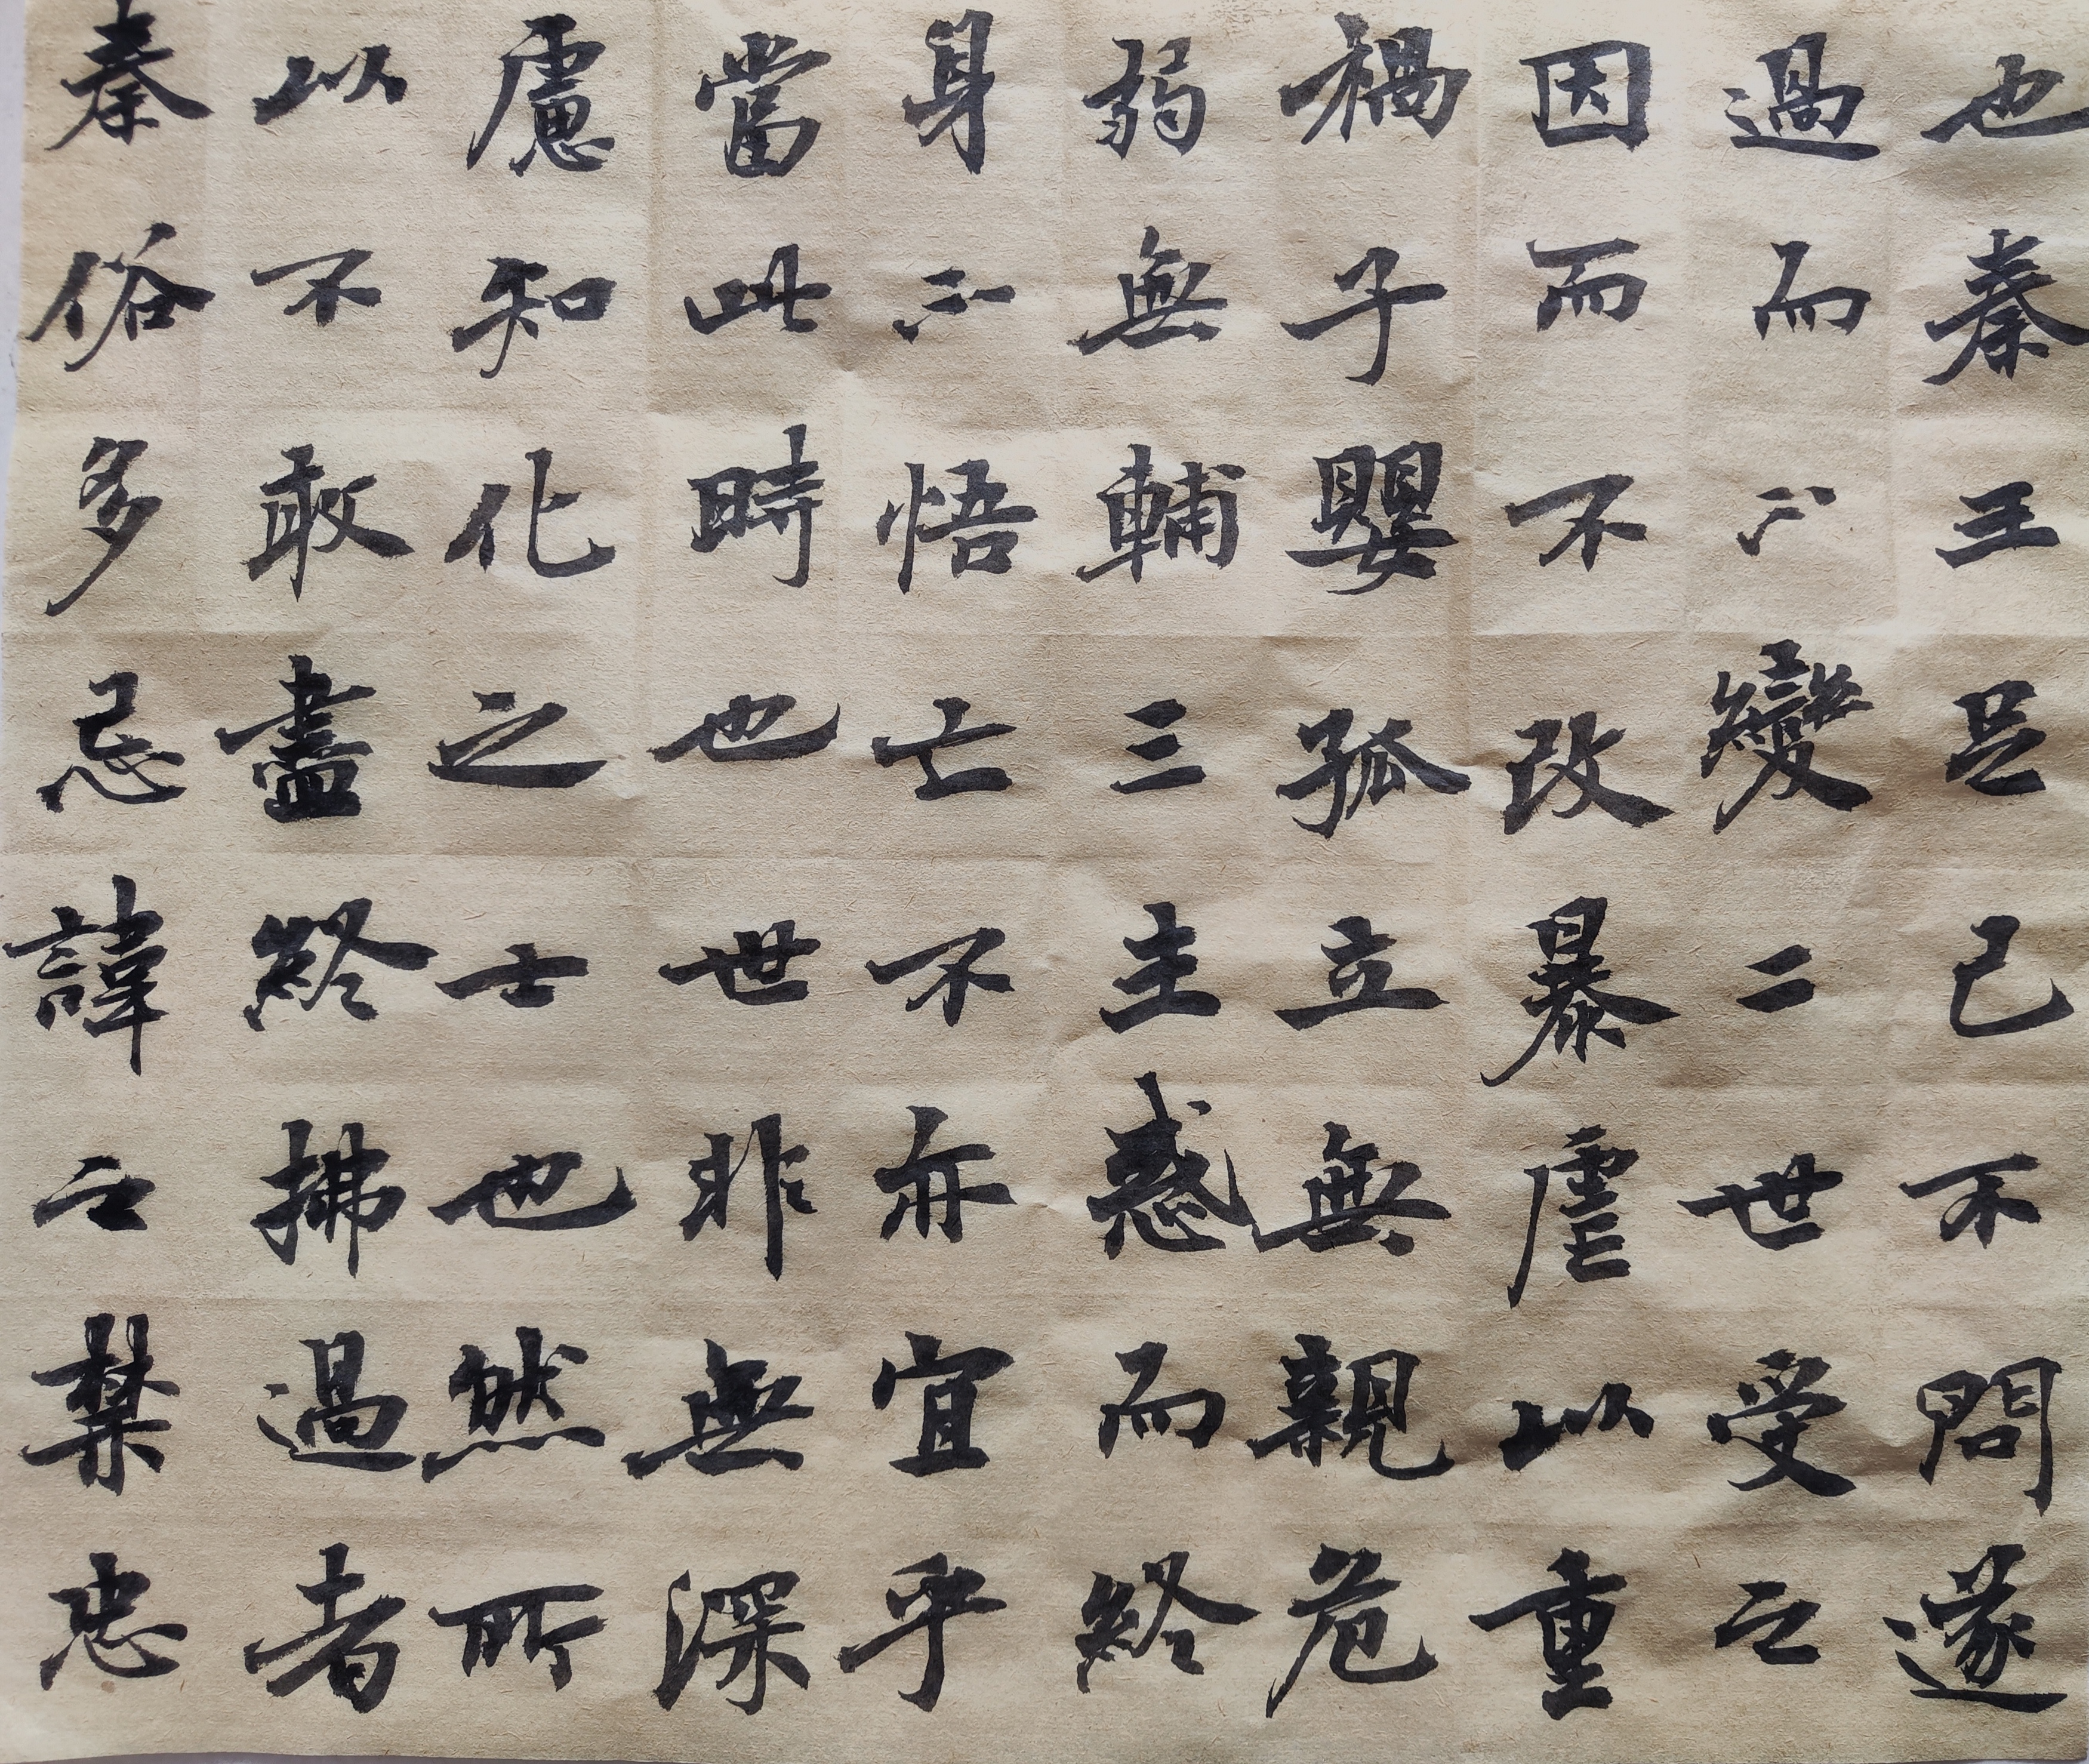 也秦王足己不問遂
過而不變二世受之
因而不改暴虐以重
禍子嬰孤立無親危
弱無輔三主惑而終
身不悟亡不亦宜乎
當此時也世非無深
慮知化之士也然所
以不敢盡終拂過者
秦俗多忌諱之禁忠